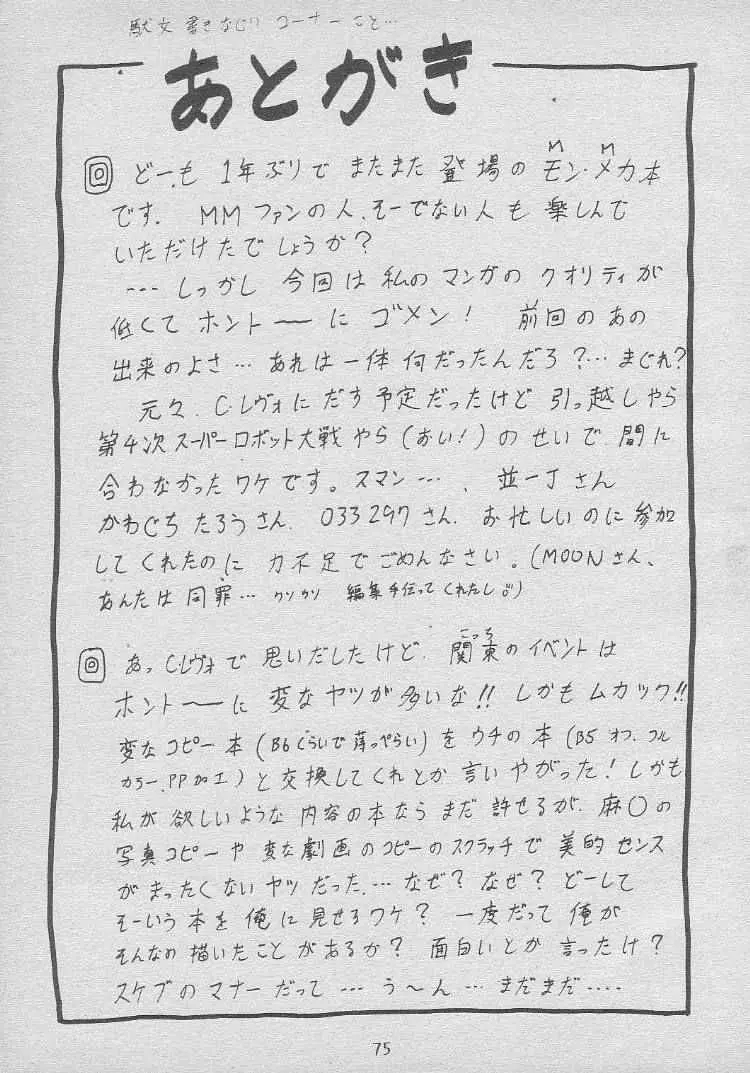 駄文書きなぐりコーナーこと…
あとがき
どーも 1年ぶりで またまた 登場の モン・メカ本
M M
です. MMファンの人、そーでない人も 楽しんで
いただけたでしょうか?
… しっかし 今回は 私の マンガの クオリティが
低くて ホントーに ゴメン! 前回のあの
出来のよさ… あれは一体何だったんだろ?… まぐれ?
元々、C.レヴォに だす予定だったけど 引っ越しやら
第4次スーパーロボット大戦やら(おい!)のせいで、間に
合わなかったワケです。スマン…、並一丁さん
かわぐちたろうさん、033297さん、お忙しいのに参加
してくれたのに 力不足でごめんなさい。(MOONさん、
あんたは同罪… クソクソ 編集手伝ってくれたし。)
あっC.レヴォで思いだしたけど、関東のイベントは
こっち
ホントーに 変なヤツが多いな!! しかもムカック!!
変なコピー本(B6くらいで薄っぺらい)をウチの本(B5 オフ、フル
カラー、PP加工)と交換してくれとか言いやがった! しかも
私が欲しいような 内容の本なら まだ 許せるが、麻○の
写真コピーや 変な劇画のコピーのスクラッチで 美的センス
がまったくないヤツだった…. なぜ? なぜ? どーして
そーいう本を俺に見せるワケ? 一度だって 俺が
そんなの描いたことがあるか? 面白いとか言ったけ?
スケブのマナーだって … う〜ん … まだまだ….
75